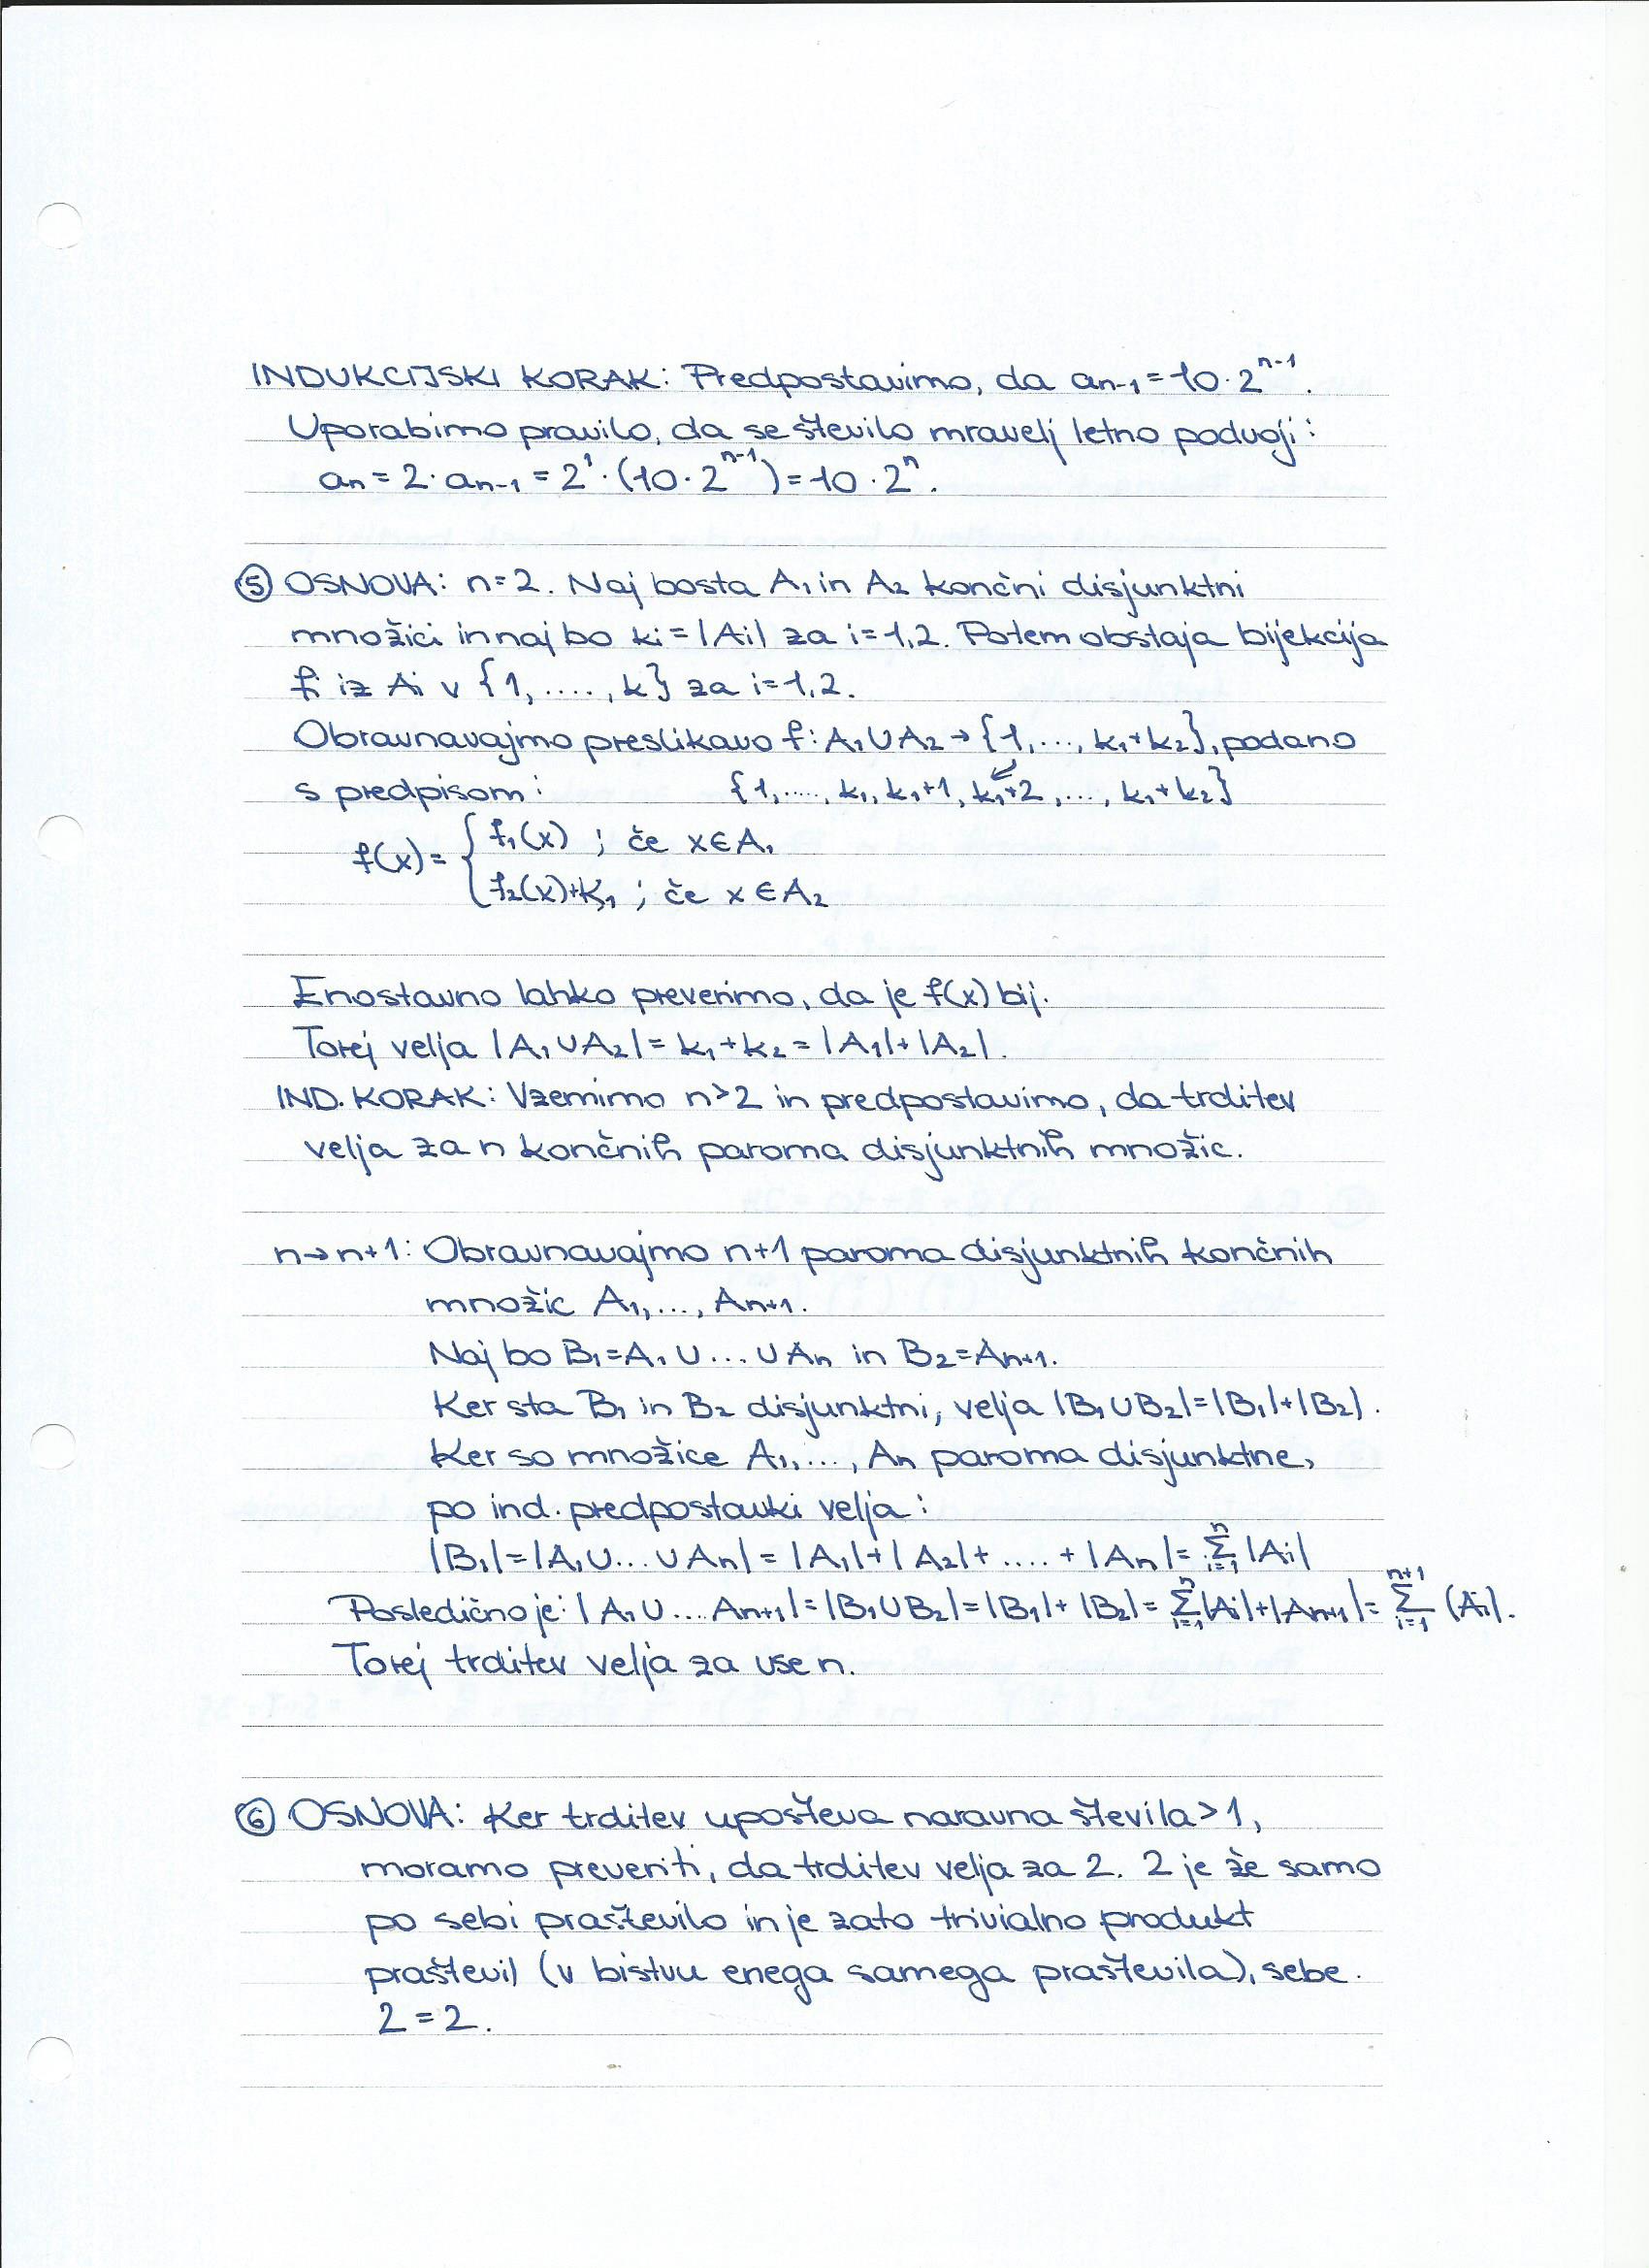 INDUKCIJSKI KORAK: Predpostavimo, da aₙ₋₁ = 10·2ⁿ⁻¹.
Uporabimo pravilo, da se število mravelj letno podvoji:
aₙ = 2·aₙ₋₁ = 2¹·(10·2ⁿ⁻¹) = 10·2ⁿ.
⑤ OSNOVA: n=2. Naj bosta A₁ in A₂ končni disjunktni
množici in naj bo ki = |Ai| za i=1,2. Potem obstaja bijekcija
fi iz Ai v {1, ....., k} za i=1,2.
Obravnavajmo preslikavo f: A₁∪A₂ → {1, ..., k₁+k₂}, podano
s predpisom: {1, ....., k₁, k₁+1, k₁+2, ..., k₁+k₂}
f(x) = { f₁(x) ; če x∈A₁
f₂(x)+k₁ ; če x∈A₂
Enostavno lahko preverimo, da je f(x) bij.
Torej velja |A₁∪A₂| = k₁+k₂ = |A₁|+|A₂|.
IND. KORAK: Vzemimo n>2 in predpostavimo, da trditev
velja za n končnih paroma disjunktnih množic.
n→n+1: Obravnavajmo n+1 paroma disjunktnih končnih
množic A₁, ..., Aₙ₊₁.
Naj bo B₁=A₁∪...∪Aₙ in B₂=Aₙ₊₁.
Ker sta B₁ in B₂ disjunktni, velja |B₁∪B₂|=|B₁|+|B₂|.
Ker so množice A₁, ..., Aₙ paroma disjunktne,
po ind. predpostavki velja:
|B₁|=|A₁∪...∪Aₙ| = |A₁|+|A₂|+ .... +|Aₙ| = Σⁿᵢ₌₁ |Ai|
Posledično je: |A₁∪...Aₙ₊₁|=|B₁∪B₂|=|B₁|+|B₂|= Σⁿᵢ₌₁|Ai|+|Aₙ₊₁|= Σⁿ⁺¹ᵢ₌₁ (Ai).
Torej trditev velja za vse n.
⑥ OSNOVA: Ker trditev upošteva naravna števila > 1,
moramo preveriti, da trditev velja za 2. 2 je že samo
po sebi praštevilo in je zato trivialno produkt
praštevil (v bistvu enega samega praštevila), sebe.
2 = 2.